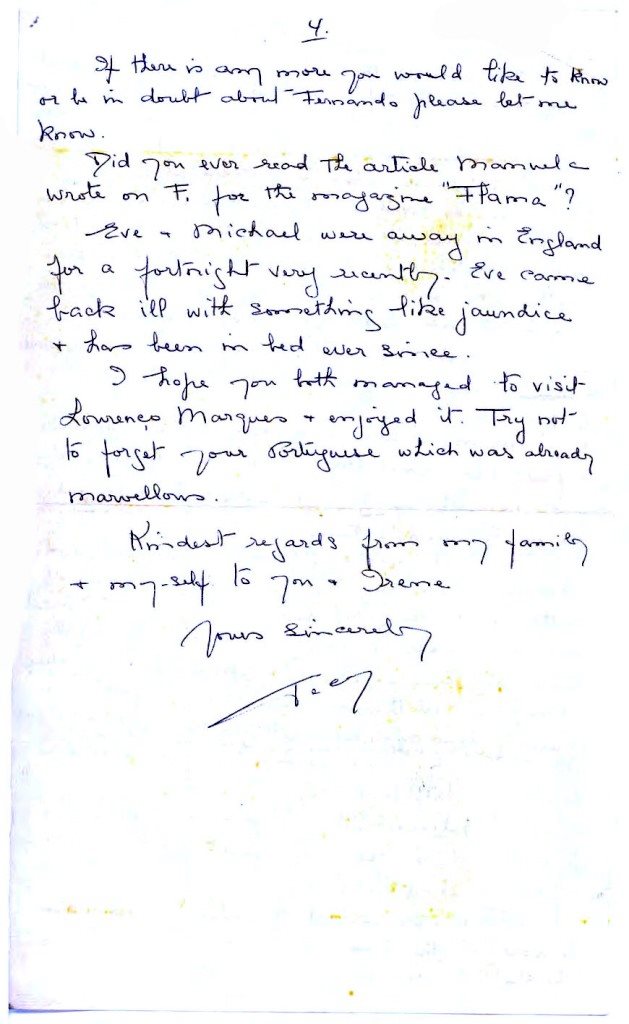 4.
If there is any more you would like to know
or be in doubt about Fernando please let me
know.
Did you ever read the article Manuela
wrote on F. for the magazine "Flama"?
Eve + Michael were away in England
for a fortnight very recently. Eve came
back ill with something like jaundice
+ has been in bed ever since.
I hope you both managed to visit
Lourenço Marques + enjoyed it. Try not
to forget your Portuguese which was already
marvellous.
Kindest regards from my family
+ my-self to you + Irene
Yours sincerely